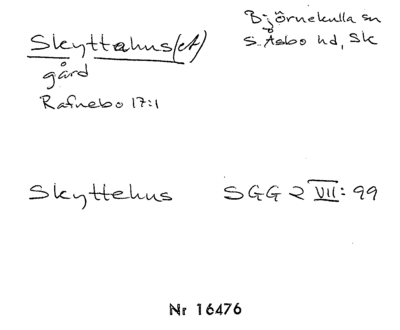 Skyttahus(et)
Björnekulla sn
S. Åsbo hd, Sk
gård
Rafnebo 17:1
Skyttehus SGG 2 VII: 99
Nr 16476